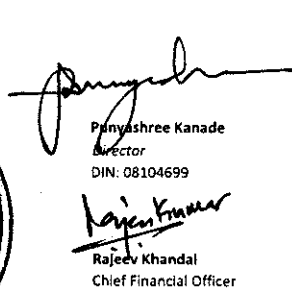 Punyashree Kanade
Director
DIN: 08104699
Rajeev Khandal
Chief Financial Officer